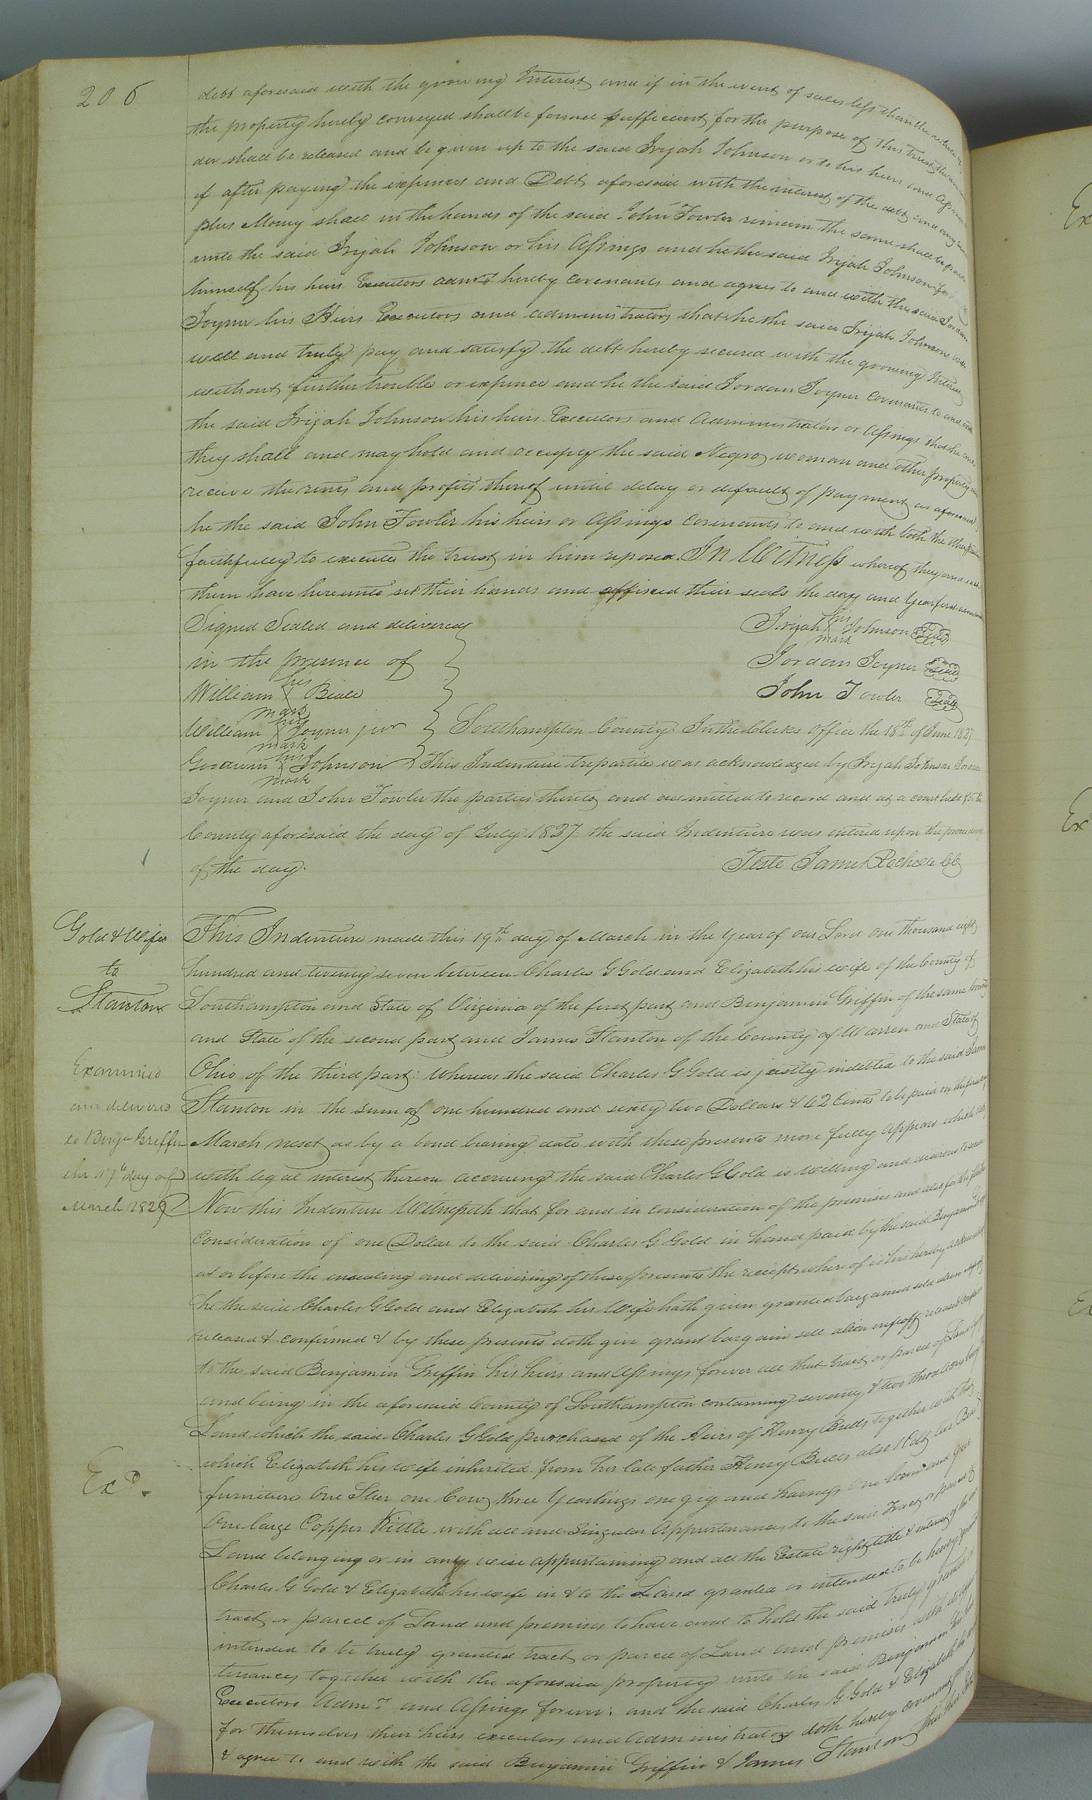 206
debt aforesaid with the growing Interest and if in the event of sales less than the whole
the property hereby conveyed shall be found sufficient for the purpose of this trust the
der shall be released and be given up to the said Irijah Johnson or to his heirs and Assigns
if after paying the expences and Debt aforesaid with the interest of the debt and any
plus Money shall in the hands of the said John Fowler remain the same shall be paid
unto the said Irijah Johnson or his Assings and he the said Irijah Johnson for
himself his heirs Executors admrs hereby covenants and agrees to and with the said Jordan
Joyner his Heirs Executors and administrators that he the said Irijah Johnson
well and truly pay and satisfy the debt hereby secured with the growing Interest
without further trouble or expence and he the said Jordan Joyner Covenants to and with
the said Irijah Johnson his heirs Executors and Administrators or Assings that he and
they shall and may hold and occupy the said Negro woman and other property and
receive the rents and profits thereof until delay or default of payment as aforesaid
he the said John Fowler his heirs or Assings covenants to and with both the other
faithfully to execute the trust in him reposed. In Witness whereof they and each
them have hereunto set their hands and affixed their seals the day and Year first
Signed Sealed and delivered
in the presence of
William his mark Beale
William his mark Joyner jur
Goodwin his mark Johnson
Irijah his mark Johnson Seal
Jordan Joyner Seal
John Fowler Seal
Southampton County In the Clerks Office the 18th of June 1827
This Indenture tripartite was acknowledged by Irijah Johnson Jordan
Joyner and John Fowler the parties thereto and admitted to record and at a court held for the
County aforesaid the day of July 1827 the said Indenture was entered upon the proceedings
of the day.
Teste James Rochelle CC
Gold & Wife
to
Stanton
Examined
and delivered
to Benja Griffin
the 17th day of
March 1829
This Indenture made this 19th day of March in the Year of our Lord one thousand eight
hundred and twenty seven between Charles G Gold and Elizabeth his wife of the County of
Southampton and State of Virginia of the first part and Benjamin Griffin of the same County
and State of the second part and James Stanton of the County of Warren and State of
Ohio of the third part: Whereas the said Charles G Gold is justly indebted to the said James
Stanton in the sum of one hundred and sixty two Dollars & 42 Cents to be paid on the first day
March next as by a bond bearing date with these presents more fully appears which
with legal interest thereon accruing the said Charles G Gold is willing and desirous to secure
Now this Indenture Witnesseth that for and in consideration of the premises and also for the further
consideration of one Dollar to the said Charles G Gold in hand paid by the said Benjamin Griffin
at or before the ensealing and delivering of these presents the receipt whereof is hereby acknowledged
he the said Charles G Gold and Elizabeth his Wife hath given granted bargained sold alien enfeoff
released & confirmed & by these presents doth give grant bargain sell alien enfeoff release & confirm
to the said Benjamin Griffin his heirs and Assings forever all that tract or parcel of Land lying
and being in the aforesaid County of Southampton containing seventy & two thirds acres being
Land which the said Charles G Gold purchased of the Heirs of Henry Butts together with that
which Elizabeth his wife inherited from her late father Henry Butts also 1 Bay
furniture One Steer one Cow three Yearlings one gig and harness One loom and Gear
One large Copper Kittle with all and Singular Appurtenances to the said Tract or parcel of
Land belonging or in any wise appurtaining and all the Estate right title & interest of the said
Charles G Gold & Elizabeth his wife in & to the Land granted or intended to be hereby granted
tract or parcel of Land and premises to have and to hold the said truly granted or
intended to be truly granted tract or parcel of Land and premises with its appur
tenances together with the aforesaid property unto the said Benjamin Griffin his
Executors Admrs and Assings forever. and the said Charles G Gold & Elizabeth his wife
for themselves their heirs executors and administrators doth hereby covenant
& agree to and with the said Benjamin Griffin & James Stanton
Exd.